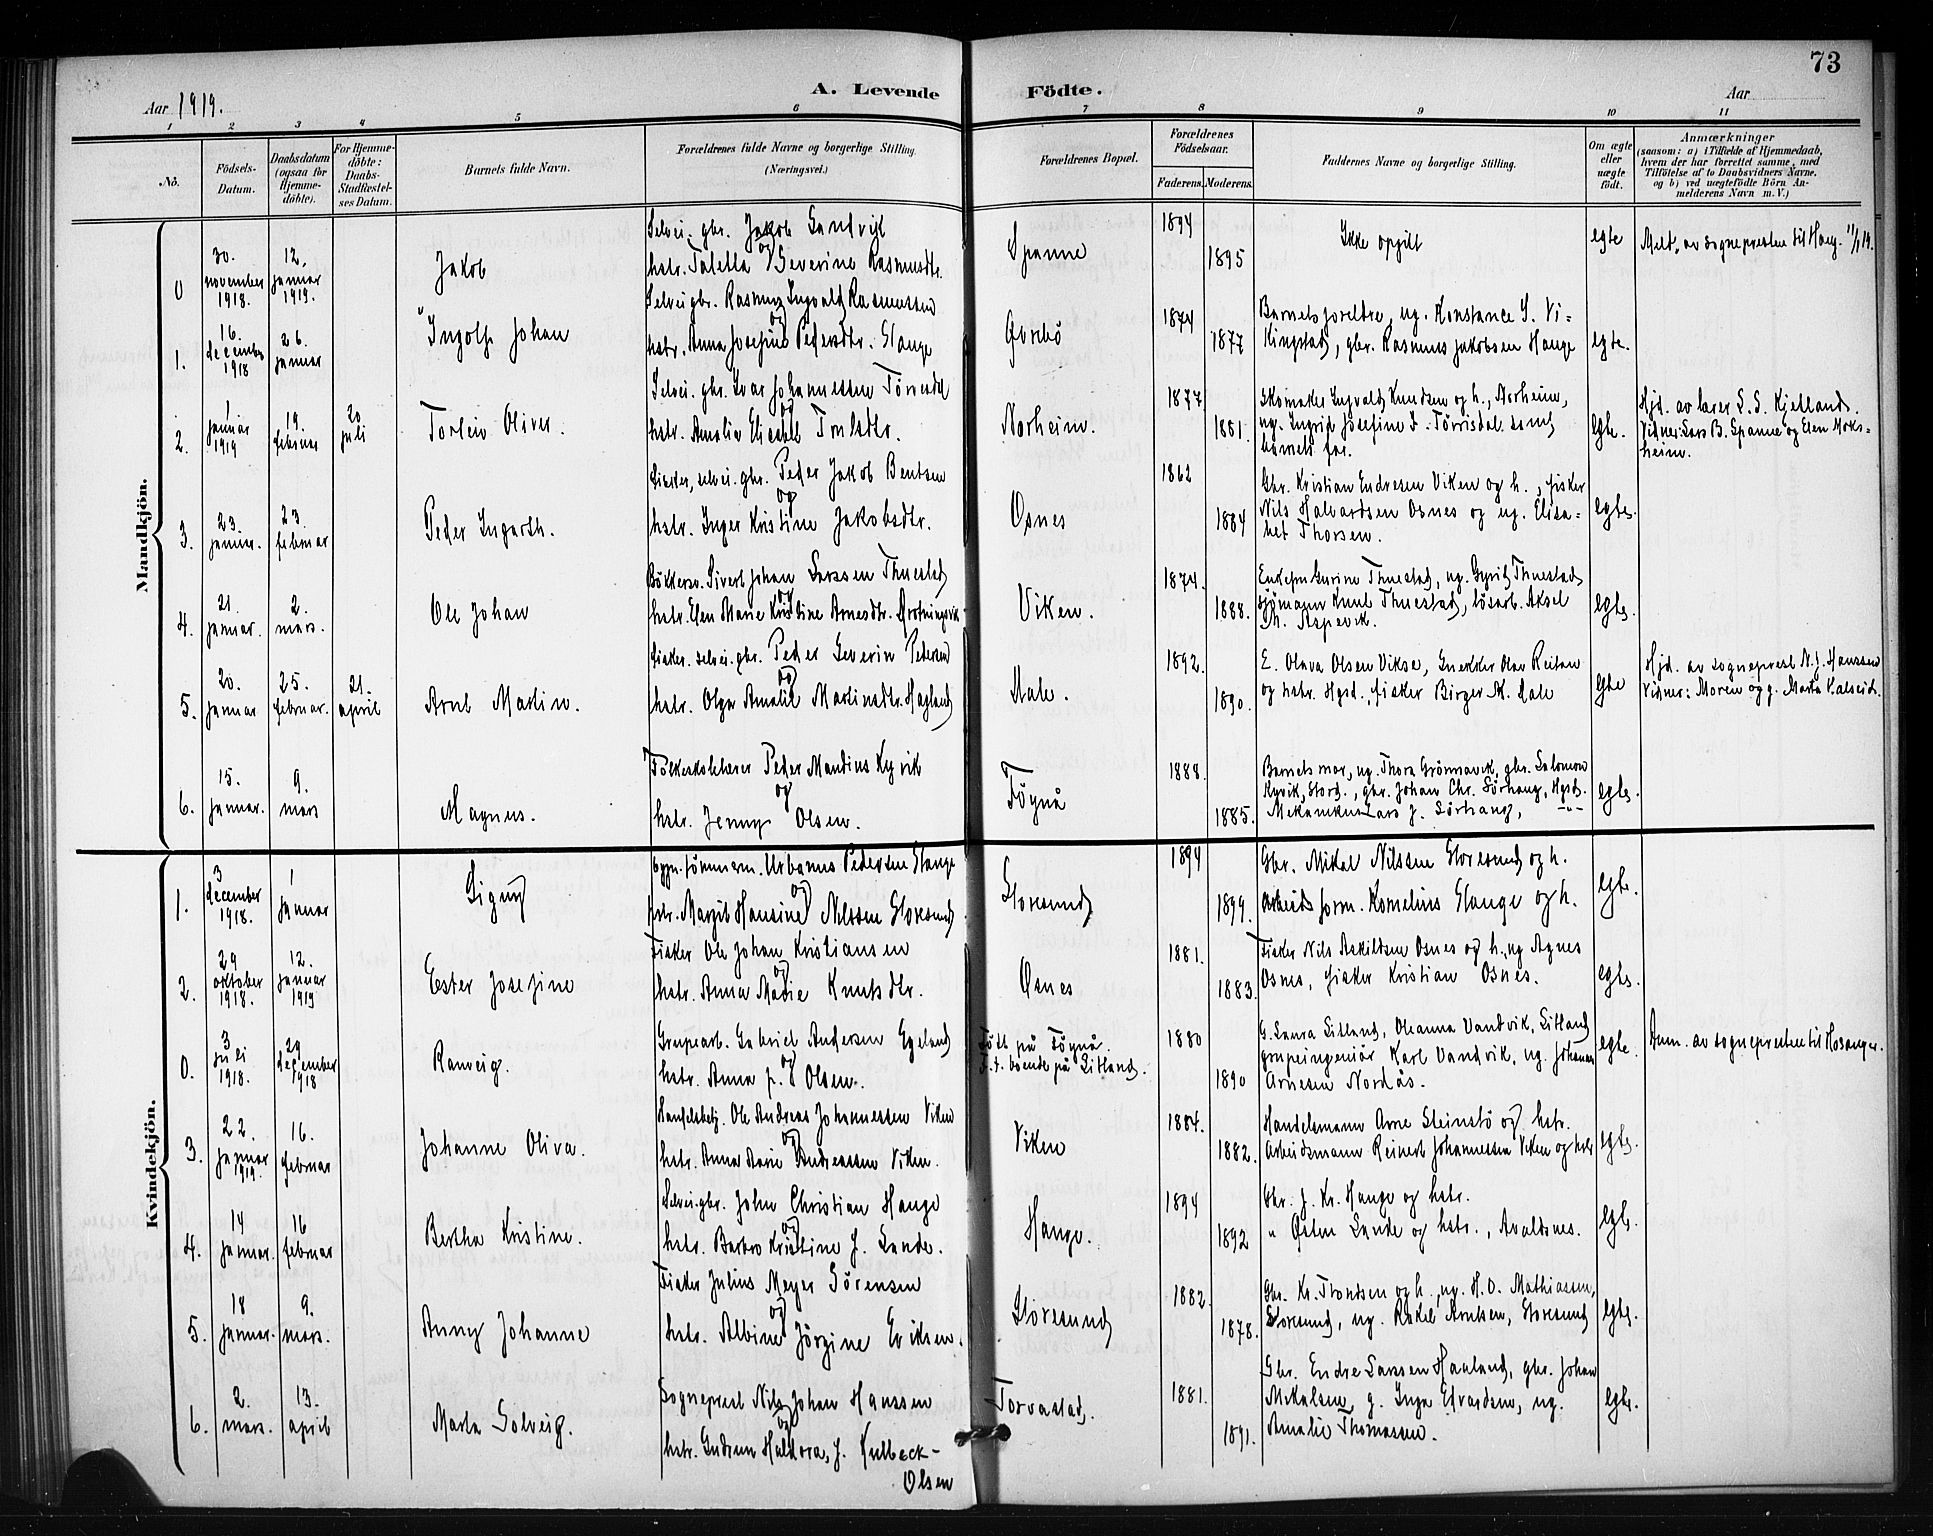 73
Aar 1919.
A. Levende Födte.
Aar
1 2 3 4 5 6 7 8 9 10 11
No.
Födsels-Datum.
Daabsdatum (ogsaa for Hjemme-döbte).
For Hjemme-döbte: Daabs-Stadfæstel-ses Datum.
Barnets fulde Navn.
Forældrenes fulde Navne og borgerlige Stilling. (Næringsvei.)
Forældrenes Bopæl.
Forældrenes Födselsaar.
Faderens. Moderens.
Faddernes Navne og borgerlige Stilling.
Om ægte eller uægte födt.
Anmærkninger
(saasom: a) i Tilfælde af Hjemmedaab, hvem der har forrettet samme, med Tilföielse af to Daabsvidners Navne, og b) ved uægtefödte Börn An-melderens Navn m. V.)
Mandkjön.
0 30. november 1918. 12. januar 1919. Jakob
Selvei. gbr. Jakob Sandvik
og
hstr. Taletta Severine Rasmusdtr.
Spanne 1894 1895 Ikke opgitt egte Meld. av sognepresten til Haug. 11/1 19.
1. 16. december 1918 26. januar Ingolf Johan
Selvei gbr. Rasmus Ingvald Rasmussen
og
hstr. Anna Josefine Pedersdtr. Stange
1874 1877
Barnets foreldre, ug. Konstance S. Vi=
kingstad, gbr. Rasmus Jakobsen Hauge egte.
2. 1 januar 1919 19. februar 20 juli Torleiv Oliver.
Selvei. gbr. Ivar Johannessen Törresdal
og
hstr. Amalie Elisabet
Norheim. 1877 1881
Skomaker Ingvald Knudsen og h., Norheim,
ug. Ingrid Josefine I. Törrisdal samt
barnets far. egte.
Hjd. av lærer S. S. Kjetland.
Vidner: Lars B. Spanne og Elen Noks=
heim.
3. 23. januar. 23. februar Peder Ingarth.
Fisker, selvei. gbr. Peder Jakob Bentsen
og
hstr. Inger Kristine Jakobsdtr.
Osnes 1862 1884
Gbr. Kristian Endresen Viken og h., fisker
Nils Halvardsen Osnes og ug. Elisa=
bet Thorsen. egte.
4. 21. januar. 2. mars. Ole Johan
Bökkersv. Sivert Johan Larssen Thuestad
og
hstr. Elen Marie Kristine Arnesdtr. Drotningsvik
Viken. 1874. 1888.
Enkefru Gurine Thuestad, ug. Gyrid Thuestad
sjömann Knut Thuestad, lösarb. Aksel
Th. Rapevik. egte.
5. 20. januar 25. februar. 21. april Arnt Martin.
Fisker. selvei. gbr. Peder Severin Pedersen
og
hstr. Olga Amalie Martinsdtr. Hagland
Hale. 1892. 1890.
E. Olava Olsen Vikse, Snekker Olav Reitan
og hstr. Hgsd., fisker Birger M. Hale egte
Hjd. av sogneprest N. J. Hanssen
Vidner: Moren og g. Marta Kalseid.
6. 15. januar. 9. mars Magnus.
Folkeskolelærer Peder Mandius Kyvik
og
hstr. Jenny Olsen.
Föynå 1888. 1885.
Barnets mor, ug. Thora Grönnavik, gbr. Salomon
Kyvik, Stord., gbr. Johan Chr. Sörhaug, Hgsd.
Mekaniker Lars J. Sörhaug, —"— egte.
Kvindekjön.
1. 3 december 1918. 1 januar Signy
Urbanus Pedersen Stange
og
hstr. Margit Hansine Nilssen Storesund
Storesund 1894 1899.
Gbr. Mikal Nilssen Storesund og h.
Arbeids form. Kornelius Stange og h. egte.
2. 29 oktober 1918. 12. januar 1919 Ester Josefine
Fisker Ole Johan Kristiansen
og
hstr. Anna Marie Knutsdtr.
Osnes 1881. 1883.
Fisker Nils Askildsen Osnes og h., ug Agnes
Osnes, fisker Kristian Osnes. egte.
0. 3 juli 1918. 29 december 1918 Ranveig.
Grupearb. Gabriel Andersen Egeland
og
hstr. Anna p. Olsen.
Födt på Föynå.
F. t. boende på Litland. 1880 1890
G. Laura Litland, Oleanna Vandvik, Litland
grupeingeniör Karl Vandvik, ug. Johannes
Arnesen Nordås. egte. Anm. av sognepresten til Hosanger.
3. 22. januar 1919. 16. februar Johanne Oliva.
Handelsbetj. Ole Andreas Johannessen Viken
og
hstr. Anna Marie Andreassen Viken.
Viken 1884. 1882.
Handelsmann Arne Steinstö og hstr.
Arbeidsmann Reinert Johannessen Viken og hstr egte.
4. 14 januar. 16 februar Bertha Kristine.
Selvei. gbr. John Christian Hauge
og
hstr. Barbro Kristine J. Lande.
Hauge. 1894 1892
Gbr. J. Kr. Hauge og hstr.
" Östen Lande og hstr., Avaldsnes. egte.
5. 18 januar. 9. mars. Anny Johanne
Fisker Julius Meyer Sörensen
og
hstr. Albine Jörgine Eriksen.
Storesund 1882. 1878.
Gbr. Kr. Trondsen og h., ug. H. O. Mathiassen,
Storesund, ug. Rakel Arntsen, Storesund egte.
6. 2. mars. 13. april Marta Solveig.
Sogneprest Nils Johan Hanssen
og
hstr. Gudrun Haldora, f. Kulbeck-
Olsen
Torvastad. 1881. 1891.
Gbr. Endre Larssen Hauland, gbr. Johan
Mikalsen, g. Inga Edvardsen, ug.
Amalie Thomassen. egte.